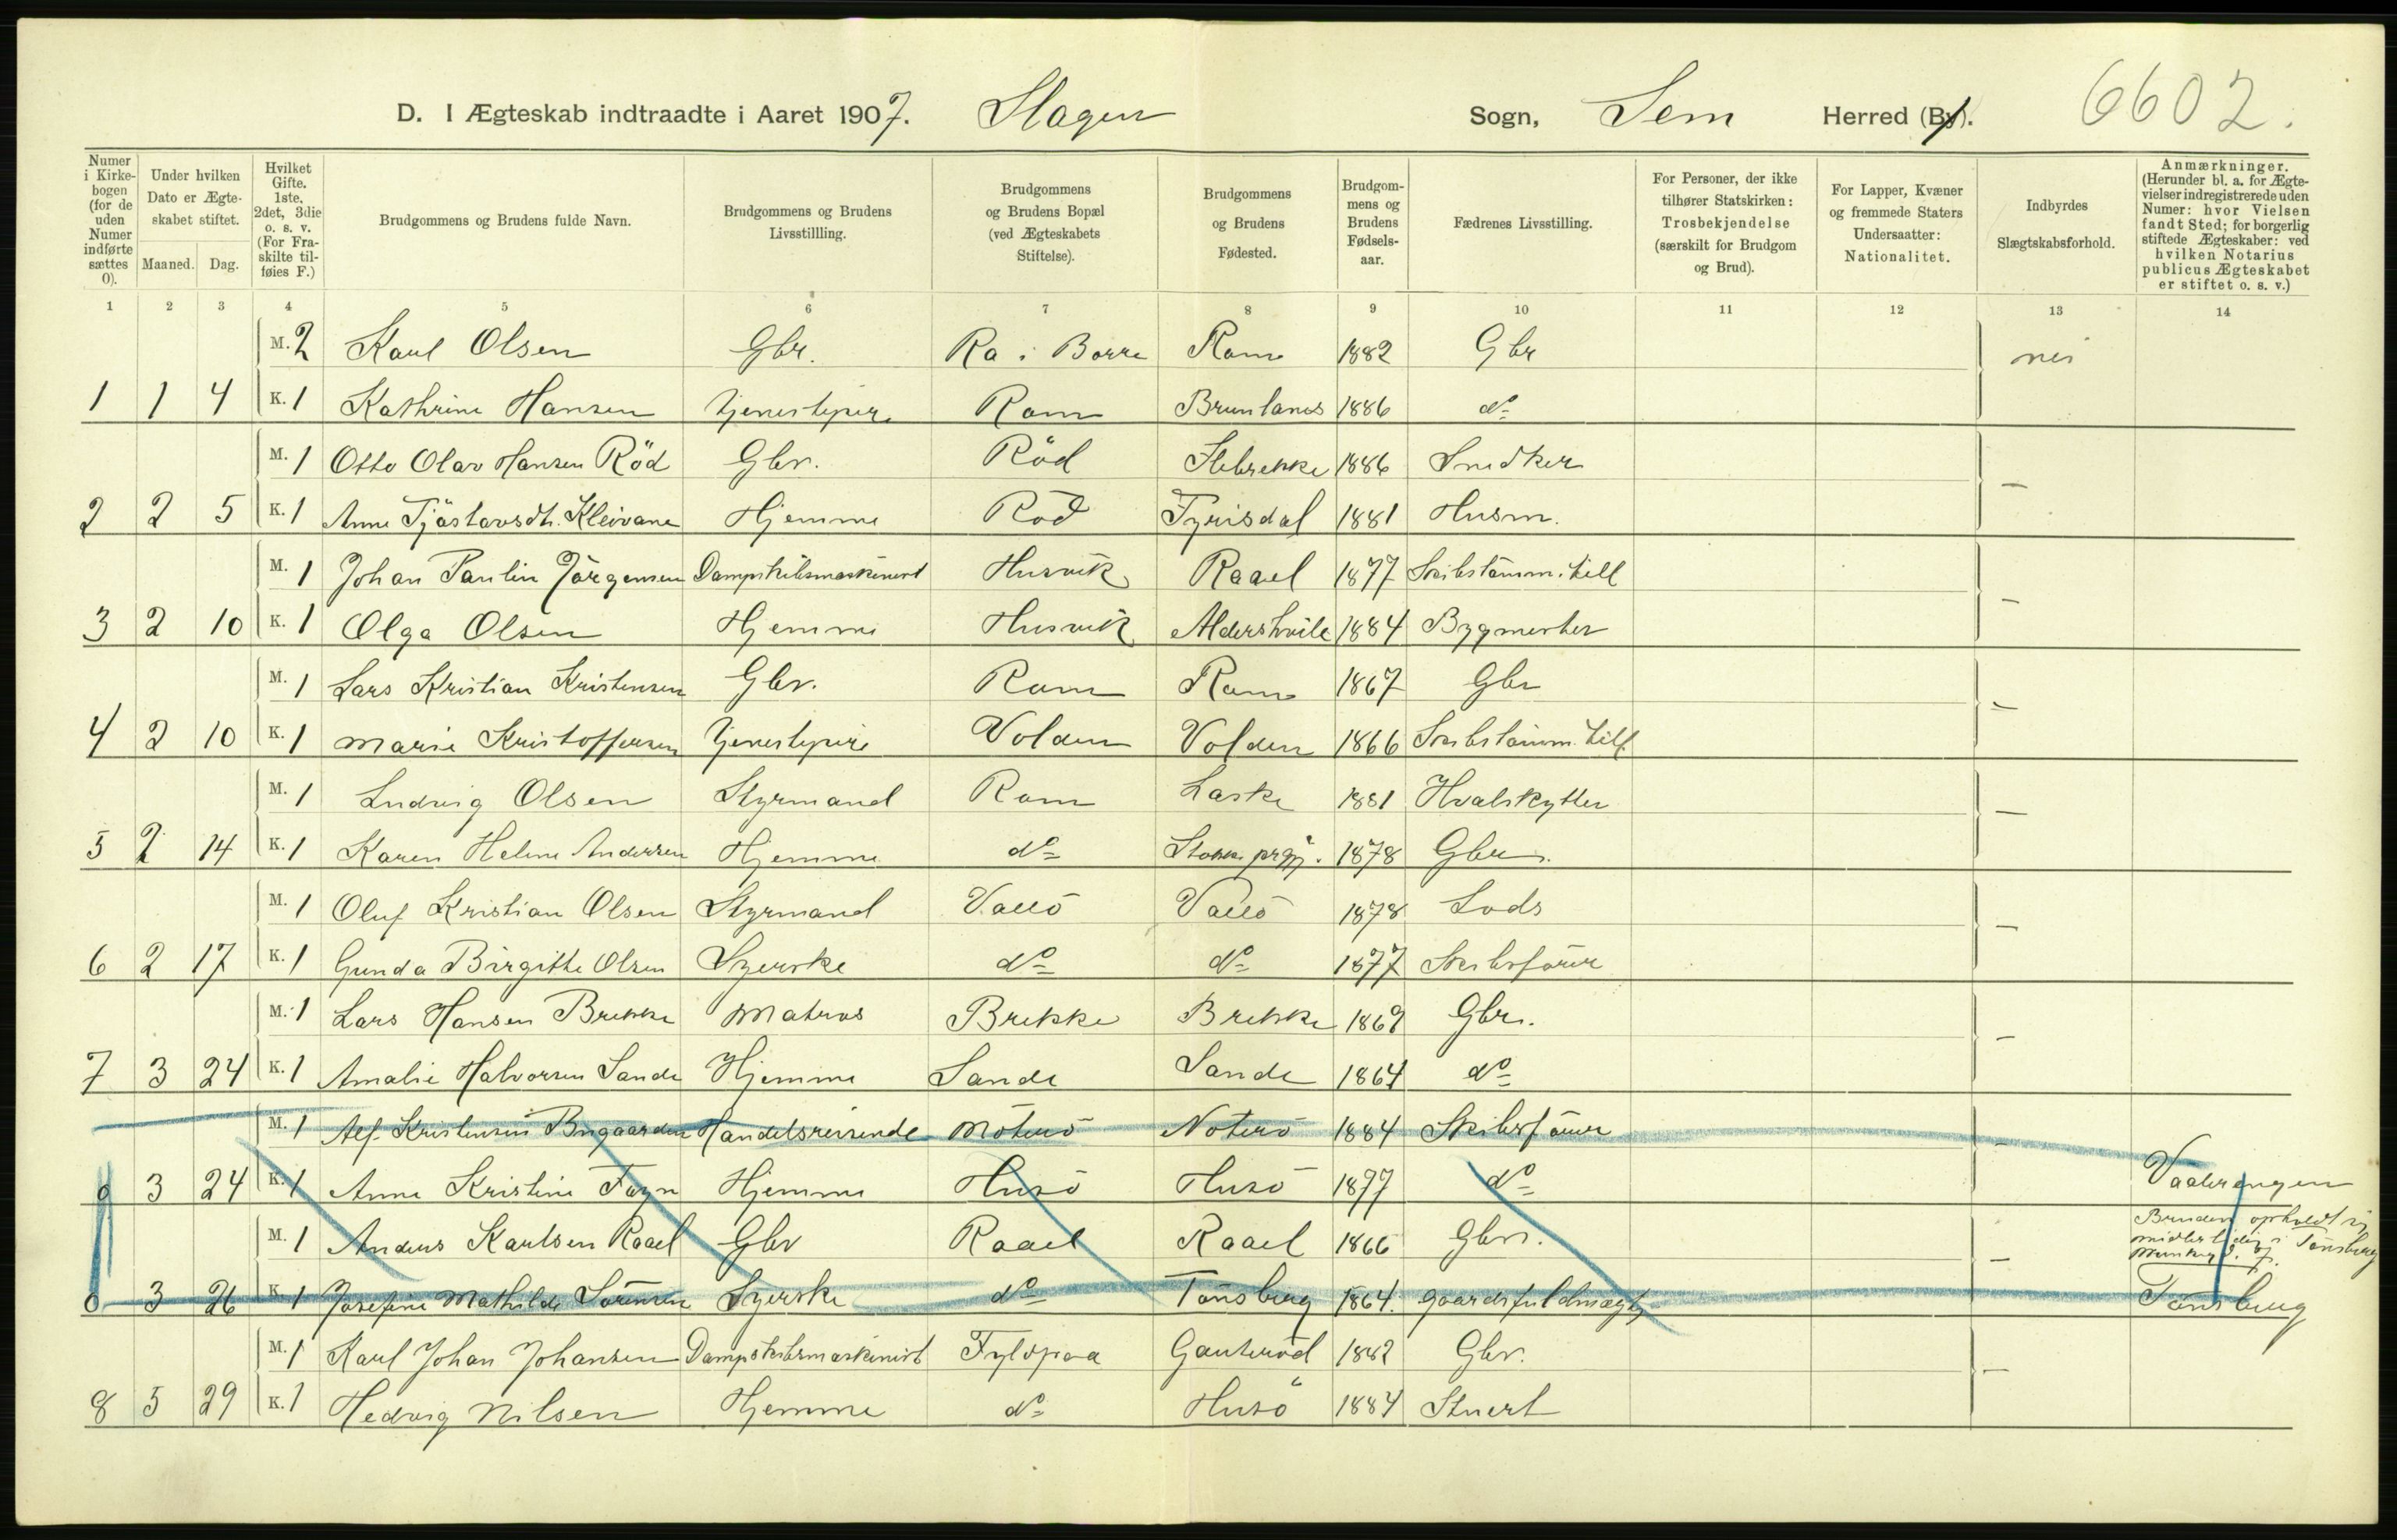 D. I Ægteskab indtraadte i Aaret 1907. Slagen Sogn, Sem Herred (By). 6602.
Numer i Kirkebogen (for de uden Numer indførte sættes 0).
Under hvilken Dato er Ægteskabet stiftet.
Maaned. Dag.
Hvilket Gifte. 1ste, 2det, 3die o. s. v. (For Fraskilte tilføies F.)
Brudgommens og Brudens fulde Navn.
Brudgommens og Brudens Livsstillling.
Brudgommens og Brudens Bopæl (ved Ægteskabets Stiftelse).
Brudgommens og Brudens Fødested.
Brudgommens og Brudens Fødselsaar.
Fædrenes Livsstilling.
For Personer, der ikke tilhører Statskirken: Trosbekjendelse (særskilt for Brudgom og Brud).
For Lapper, Kvæner og fremmede Staters Undersaatter: Nationalitet.
Indbyrdes Slægtskabsforhold.
Anmærkninger. (Herunder bl. a. for Ægtevielser indregistrerede uden Numer: hvor Vielsen fandt Sted; for borgerlig stiftede Ægteskaber: ved hvilken Notarius publicus Ægteskabet er stiftet o. s. v.)
1 2 3 4 5 6 7 8 9 10 11 12 13 14
M. 2 Karl Olsen Gbr. Ra i Borre Ram 1882 Gbr nei
1 1 4 K. 1 Kathrine Hansen Tjenestepige Ram Brunlanes 1886 do
M. 1 Otto Olav Hansen Röd Gbr. Röd Slebrekke 1886 Snedker
2 2 5 K. 1 Anne Tjöstavsdt. Kleivane Hjemme Röd Fyrisdal 1881 Husm. —
M. 1 Johan Paulin Jörgensen Dampskibsmaskinist Husvik Raael 1877 Skibstömm. till
3 2 10 K. 1 Olga Olsen Hjemme Husvik Aldershvile 1884 Bygmester —
M. 1 Lars Kristian Kristensen Gbr. Ram Ram 1867 Gbr
4 2 10 K. 1 Marie Kristoffersen Tjenestepige Volden Volden 1866 Skibstömm. till. —
M. 1 Ludvig Olsen Styrmand Ram Laske 1881 Hvalskytter
5 2 14 K. 1 Karen Heline Andersen Hjemme do Stokke prgj. 1878 Gbr. —
M. 1 Oluf Kristian Olsen Styrmand Vallö Vallö 1878 Lods
6 2 17 K. 1 Gunda Birgitte Olsen Syerske do do 1877 Skibsförer —
M. 1 Lars Hansen Brekke Matros Brekke Brekke 1869 Gbr.
7 3 24 K. 1 Amalie Halvorsen Sande Hjemme Sande Sande 1864 do —
M. 1 Alf. Kristensen Bugaarden Handelsreisende Nöterö Nöterö 1884 Skibsförer
0 3 24 K. 1 Anne Kristine Fayn Hjemme Husö Husö 1877 do — Vaalerengen
M. 1 Anders Karlsen Raael Gbr Raael Raael 1866 Gbr. Bruden opholdt sig midlertidig i Tönsberg
0 3 26 K. 1 Josefine Mathilde Sörensen Syerske do Tönsberg 1864. Gaardsfuldmægtig — Tönsberg
M. 1 Karl Johan Johansen Dampskibsmaskinist Fyldpaa Ganteröd 1882 Gbr.
8 5 29 K. 1 Hedvig Nilsen Hjemme do Husö 1884 Stuert —